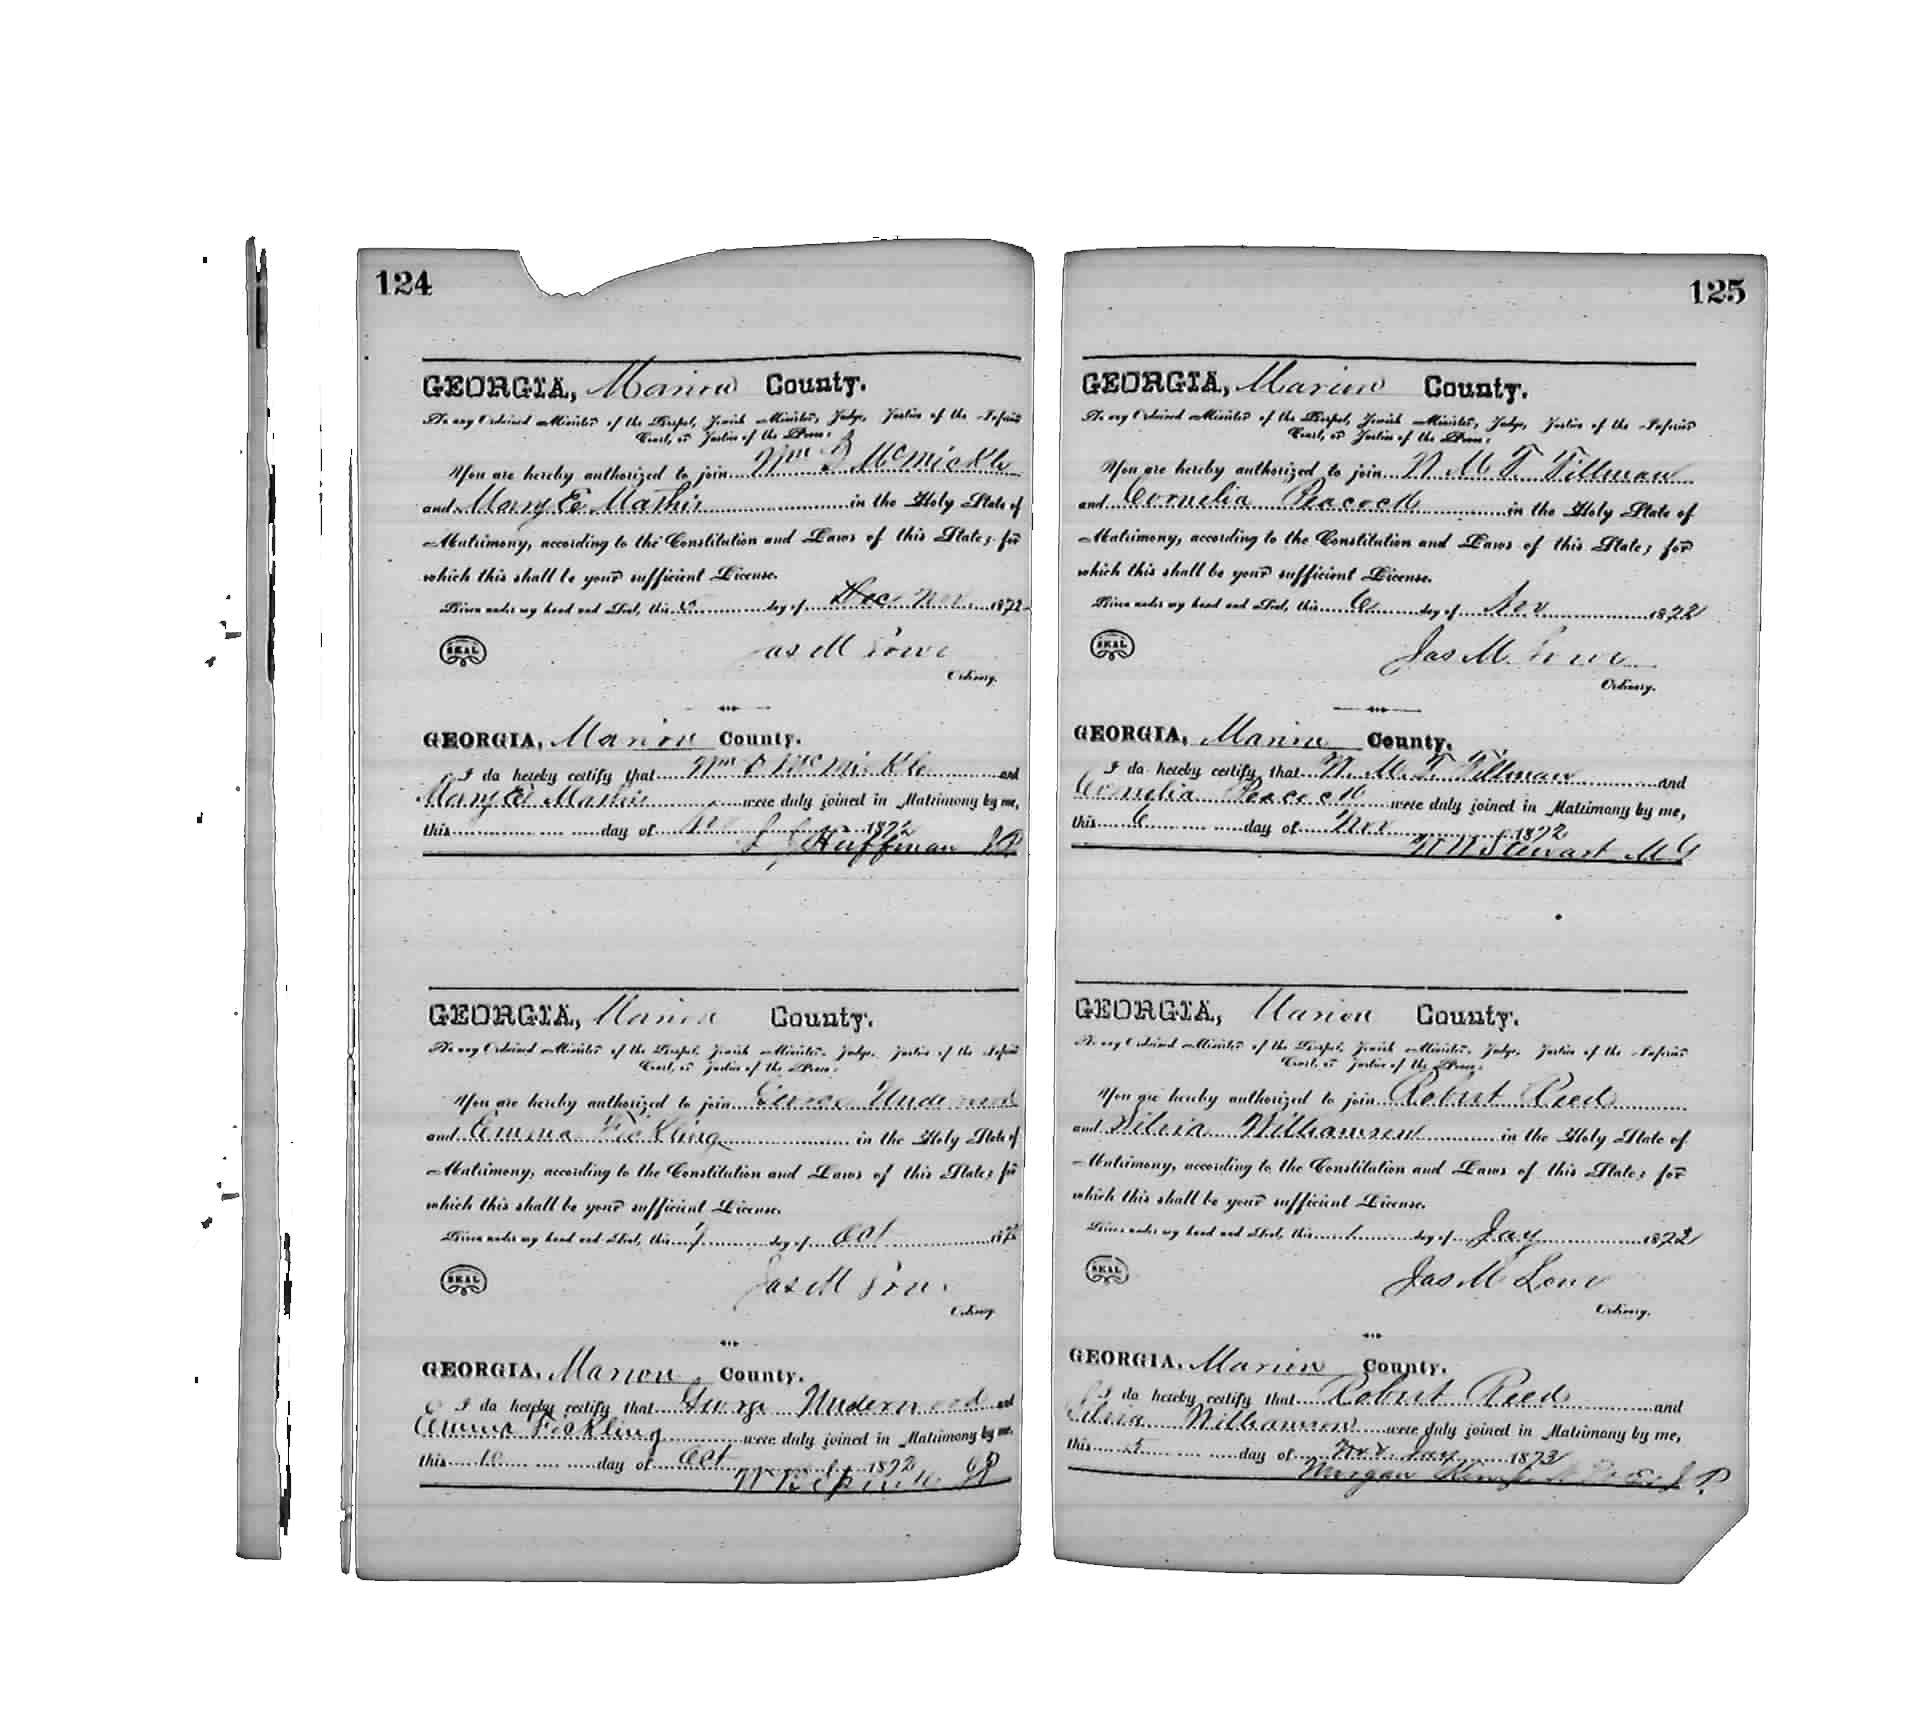 124
GEORGIA, Marion County.
To any Ordained Minister of the Gospel, Jewish Minister, Judge, Justice of the Inferior
Court, or Justice of the Peace:
You are hereby authorized to join Wm McMickle
and Mary E Mathis in the Holy State of
Matrimony, according to the Constitution and Laws of this State; for
which this shall be your sufficient License.
Given under my hand and Seal, this day of Dec Nov 1872
SEAL
Jas M Lowe
Ordinary.
GEORGIA, Marion County.
I do hereby certify that Wm McMickle and
Mary E Mathis were duly joined in Matrimony by me,
this day of 1872
Huffman J.P.
GEORGIA, Marion County.
To any Ordained Minister of the Gospel, Jewish Minister, Judge, Justice of the Inferior
Court, or Justice of the Peace:
You are hereby authorized to join George Underwood
and Emma Fickling in the Holy State of
Matrimony, according to the Constitution and Laws of this State; for
which this shall be your sufficient License.
Given under my hand and Seal, this 9 day of Oct 1872
SEAL
Jas M Lowe
Ordinary
GEORGIA, Marion County.
I do hereby certify that George Underwood and
Emma Fickling were duly joined in Matrimony by me,
this 10 day of Oct 1872
JP
125
GEORGIA, Marion County.
To any Ordained Minister of the Gospel, Jewish Minister, Judge, Justice of the Inferior
Court, or Justice of the Peace:
You are hereby authorized to join W. M. T. Tillman
and Cornelia Peacock in the Holy State of
Matrimony, according to the Constitution and Laws of this State; for
which this shall be your sufficient License.
Given under my hand and Seal, this 6 day of Nov 1872
SEAL
Jas M. Lowe
Ordinary.
GEORGIA, Marion County.
I do hereby certify that W. M. T. Tillman and
Cornelia Peacock were duly joined in Matrimony by me,
this 6 day of Nov 1872
W W Stewart M G
GEORGIA, Marion County.
To any Ordained Minister of the Gospel, Jewish Minister, Judge, Justice of the Inferior
Court, or Justice of the Peace:
You are hereby authorized to join Robert Reed
and Silvia Williamson in the Holy State of
Matrimony, according to the Constitution and Laws of this State; for
which this shall be your sufficient License.
Given under my hand and Seal, this 1 day of Jay 1872
SEAL
Jas M Lowe
Ordinary.
GEORGIA, Marion County.
I do hereby certify that Robert Reed and
Silvia Williamson were duly joined in Matrimony by me,
this 5 day of Nov Jay 1873
Morgan Kemp J. P.